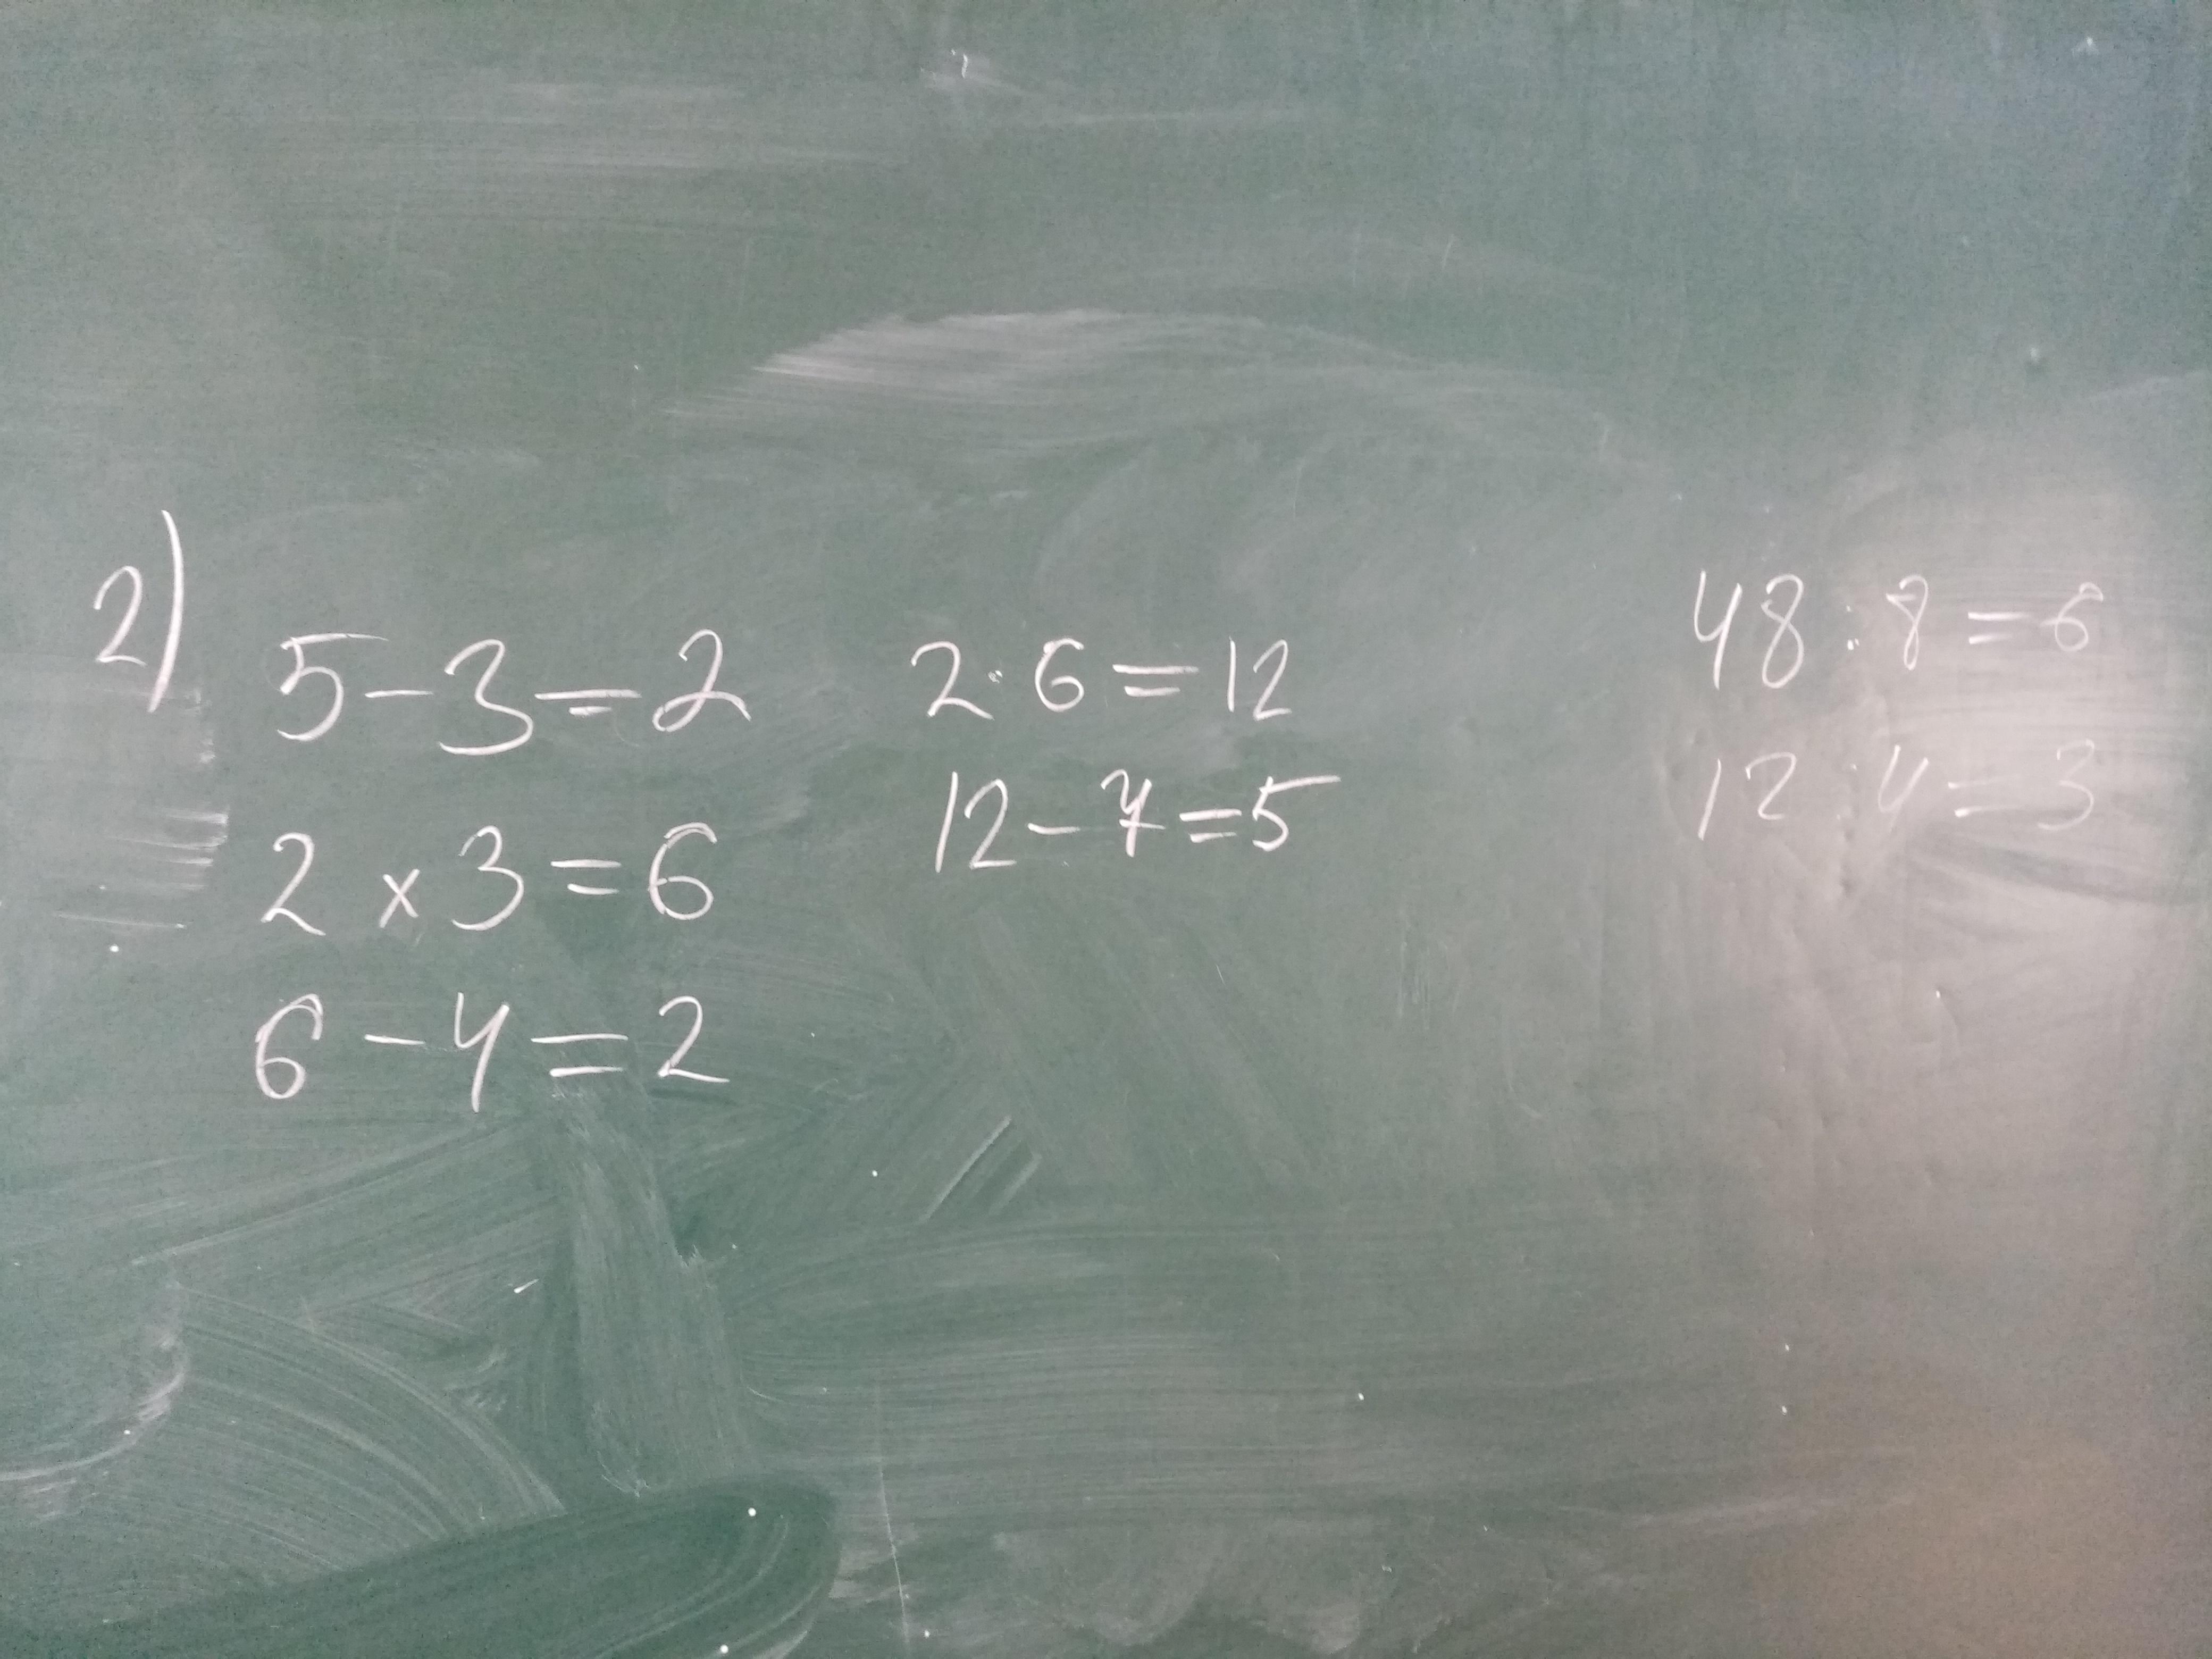 2)
5-3=2
2 x 3=6
6-4=2
2·6=12
12-7=5
48:8=6
12:4=3